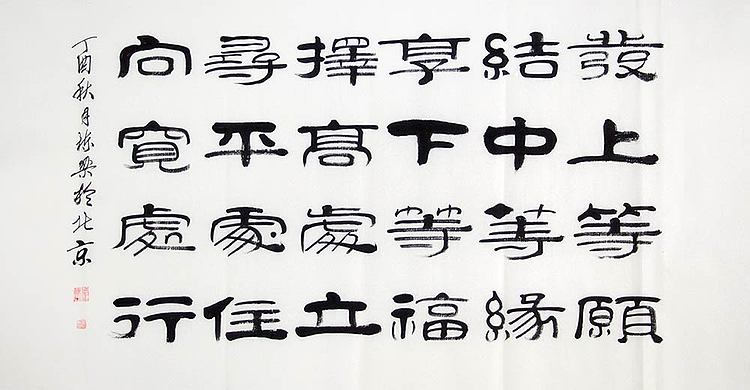 發上等願
結中等緣
享下等福
擇高處立
尋平處住
向寬處行
丁酉秋月陈樂於北京